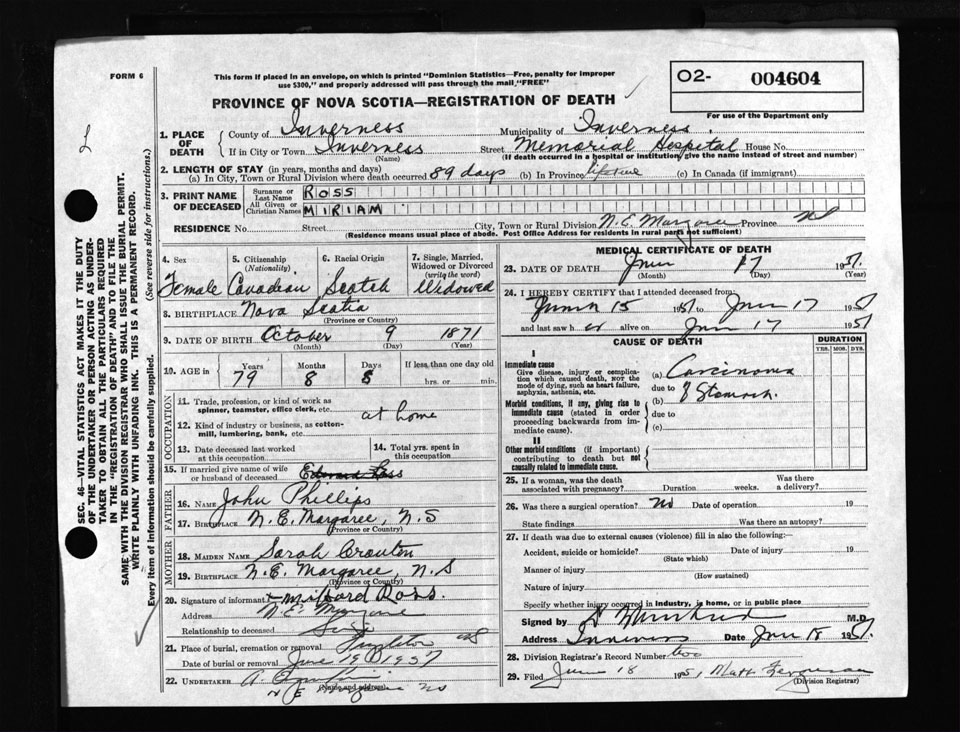 FORM 6
This form if placed in an envelope, on which is printed "Dominion Statistics—Free, penalty for improper
use $300," and properly addressed will pass through the mail, "FREE"
O2- 004604
For use of the Department only
PROVINCE OF NOVA SCOTIA—REGISTRATION OF DEATH
1. PLACE OF DEATH
County of Inverness Municipality of Inverness
If in City or Town Inverness Street Memorial Hospital House No.
(Name) (If death occurred in a hospital or institution, give the name instead of street and number)
2. LENGTH OF STAY (in years, months and days)
(a) In City, Town or Rural Division where death occurred 89 days (b) In Province lifetime (c) In Canada (if immigrant)
3. PRINT NAME OF DECEASED
Surname or Last Name ROSS
All Given or Christian Names MIRIAM
RESIDENCE No. Street City, Town or Rural Division N.E. Margaree Province NS
(Residence means usual place of abode. Post Office Address for residents in rural parts not sufficient)
4. Sex Female
5. Citizenship (Nationality) Canadian
6. Racial Origin Scotch
7. Single, Married, Widowed or Divorced (write the word) Widowed
8. BIRTHPLACE Nova Scotia
(Province or Country)
9. DATE OF BIRTH October 9 1871
(Month) (Day) (Year)
10. AGE in Years Months Days If less than one day old
79 8 8 hrs. or min.
OCCUPATION
11. Trade, profession, or kind of work as
spinner, teamster, office clerk, etc. at home
12. Kind of industry or business, as cotton-
mill, lumbering, bank, etc.
13. Date deceased last worked
at this occupation
14. Total yrs. spent in
this occupation
15. If married give name of wife
or husband of deceased Edward Ross
FATHER
16. NAME John Phillips
17. BIRTHPLACE N.E. Margaree, N.S
(Province or Country)
MOTHER
18. MAIDEN NAME Sarah
19. BIRTHPLACE N.E. Margaree, N.S
(Province or Country)
20. Signature of informant Ross.
Address N.E.
Relationship to deceased
21. Place of burial, cremation or removal NS
Date of burial or removal June 19
22. UNDERTAKER A.
(Name and address)
N E NS
MEDICAL CERTIFICATE OF DEATH
23. DATE OF DEATH June 17 1951
(Month) (Day) (Year)
24. I HEREBY CERTIFY that I attended deceased from:
June 15 1951 to June 17 1951
and last saw h er alive on June 17 1951
CAUSE OF DEATH
DURATION
YRS. MOS. DYS.
I
Immediate cause
Give disease, injury or complica-
tion which caused death, NOT the
mode of dying, such as heart failure,
asphyxia, asthenia, etc.
(a) Carcinoma
due to
(b) of Stomach.
Morbid conditions, if any, giving rise to
immediate cause (stated in order
proceeding backwards from im-
mediate cause).
due to
(c)
II
Other morbid conditions (if important)
contributing to death but not
causally related to immediate cause.
25. If a woman, was the death
associated with pregnancy? Duration weeks. Was there
a delivery?
26. Was there a surgical operation? No Date of operation 19
State findings Was there an autopsy?
27. If death was due to external causes (violence) fill in also the following:
Accident, suicide or homicide? Date of injury 19
(State which)
Manner of injury
(How sustained)
Nature of injury
Specify whether injury occurred in industry, in home, or in public place
Signed by M.D.
Address Inverness Date June 18 1951
28. Division Registrar's Record Number two
29. Filed June 18 1951
(Division Registrar)
SEC. 46—VITAL STATISTICS ACT MAKES IT THE DUTY
OF THE UNDERTAKER OR PERSON ACTING AS UNDER-
TAKER TO OBTAIN ALL THE PARTICULARS REQUIRED
IN THE "REGISTRATION OF DEATH" AND TO FILE THE
SAME WITH THE DIVISION REGISTRAR WHO SHALL ISSUE THE BURIAL PERMIT.
WRITE PLAINLY WITH UNFADING INK. THIS IS A PERMANENT RECORD.
Every item of information should be carefully supplied. (See reverse side for instructions.)